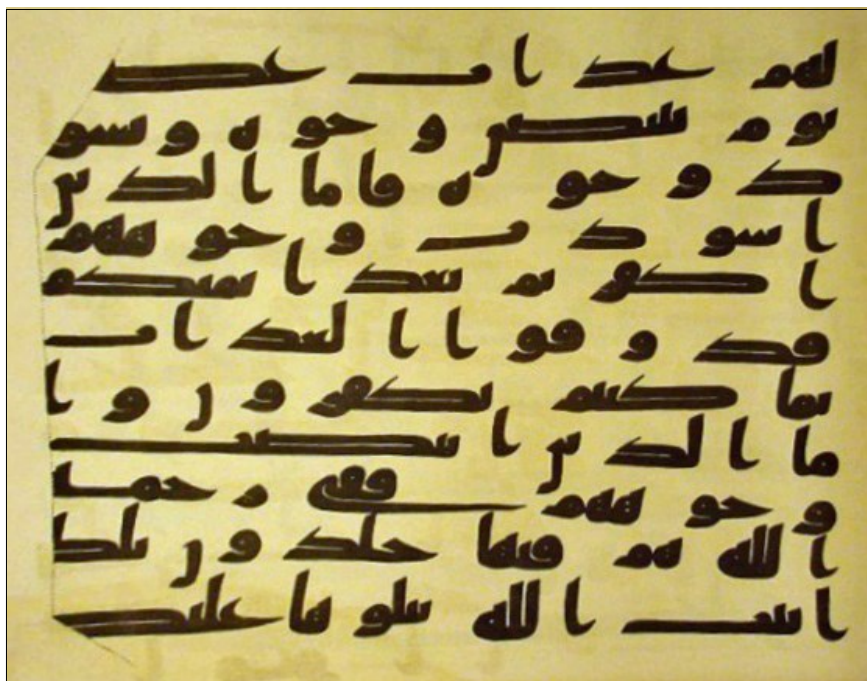 لهم عذاب عظ
يوم تبيض وجوه وتسو
د وجوه فاما الذين
اسودت وجوههم
اكفرتم بعد ايمنكم
فذوقوا العذاب
بما كنتم تكفرون وا
ما الذين ابيضت
وجوههم ففي رحمة
الله هم فيها خلدون تلك
ايت الله نتلوها عليك